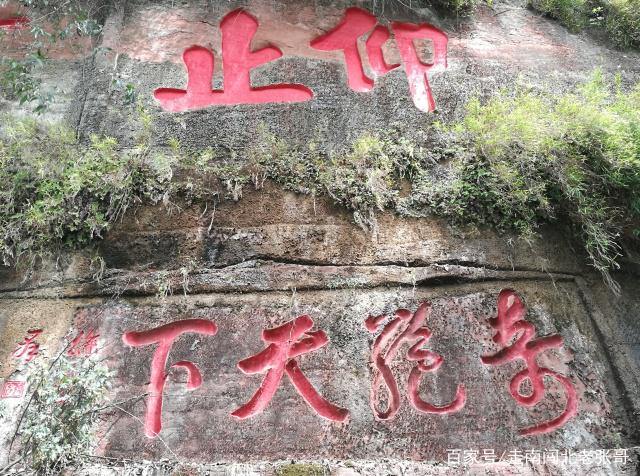 仰止
奇绝天下
百家号/走南闯北老张哥